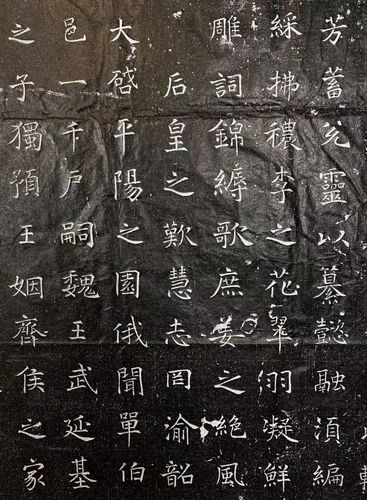 芳蓄兊靈以纂懿融湏編
綵拂穠李之花翠羽凝鮮
雕詞錦縟歌庶姜之絕風
后皇之歎慧志罔渝韶
大啓平陽之園俄聞單伯
邑一千戶嗣魏王武延基
之子獨預王姻齊侯之家